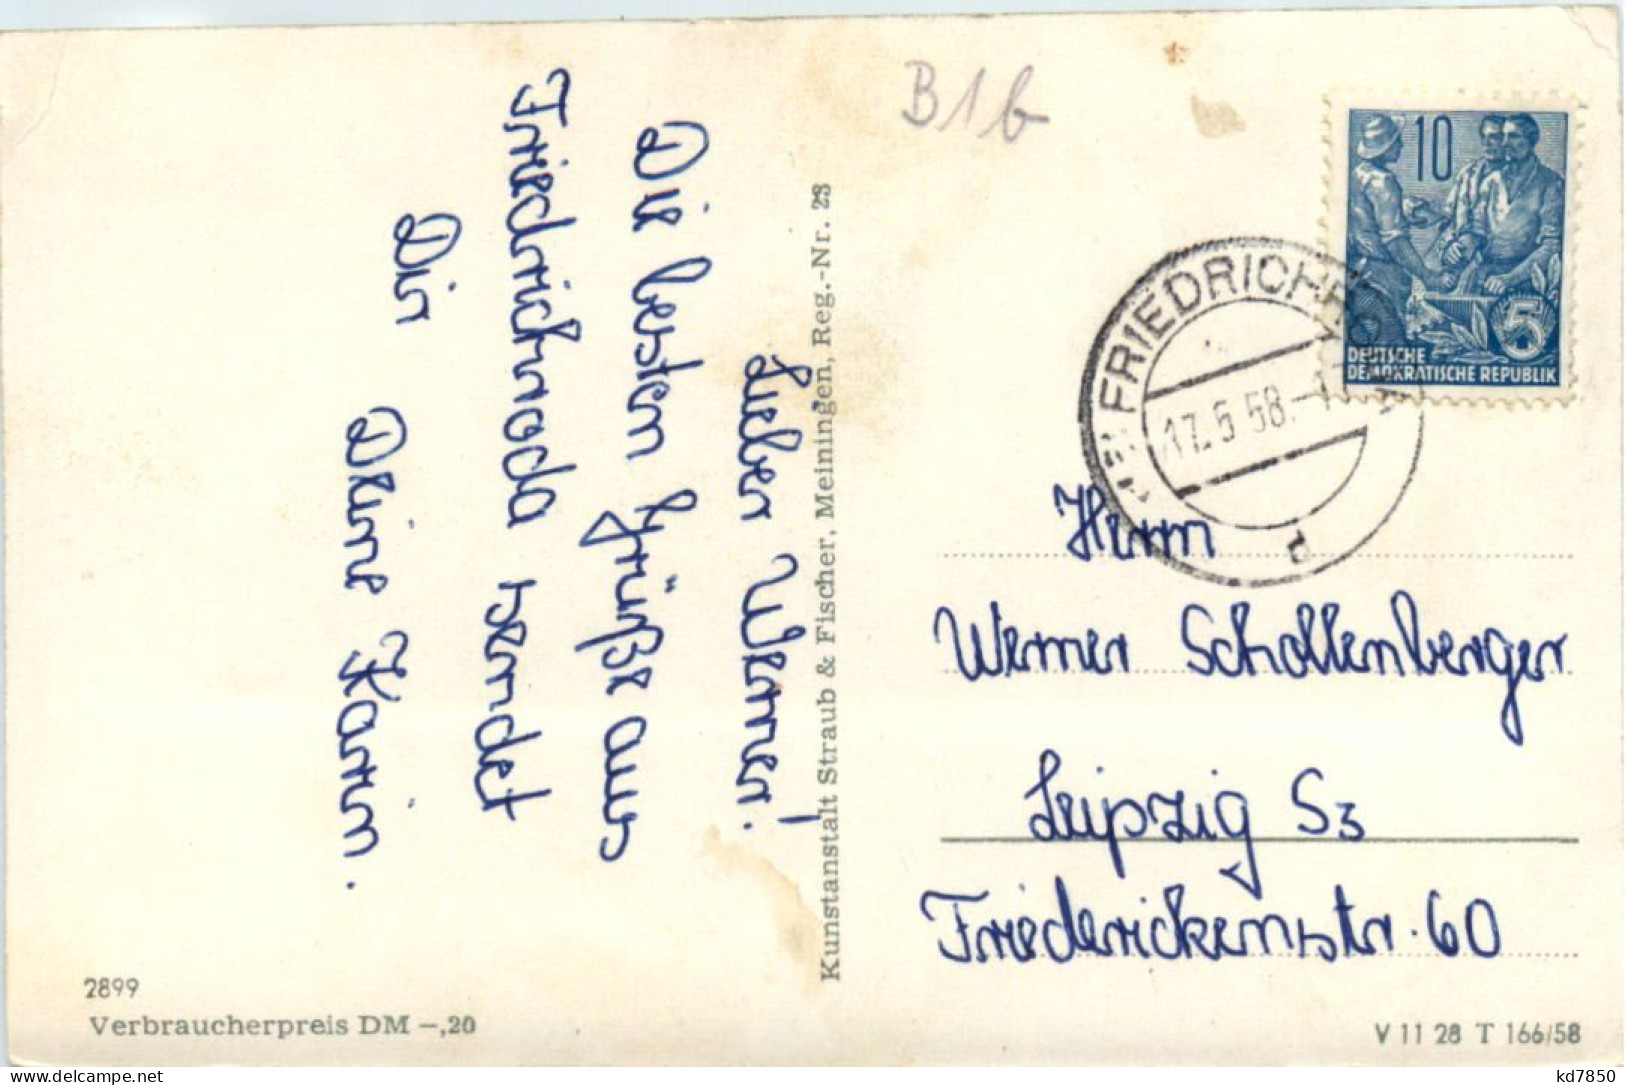 Lieber Werner!
Die besten Grüße aus
Friedrichroda sendet
Dir
Deine Karin.
Kunstanstalt Straub & Fischer, Meiningen, Reg.-Nr. 23
2899
Verbraucherpreis DM –,20
B1b
10
5
DEUTSCHE
DEMOKRATISCHE REPUBLIK
FRIEDRICHRODA
17.5.58.-17
b
Herrn
Werner Schollenberger
Leipzig S3
Friederickenstr. 60
V 11 28 T 166/58
https://www.delcampe.net
kd7850